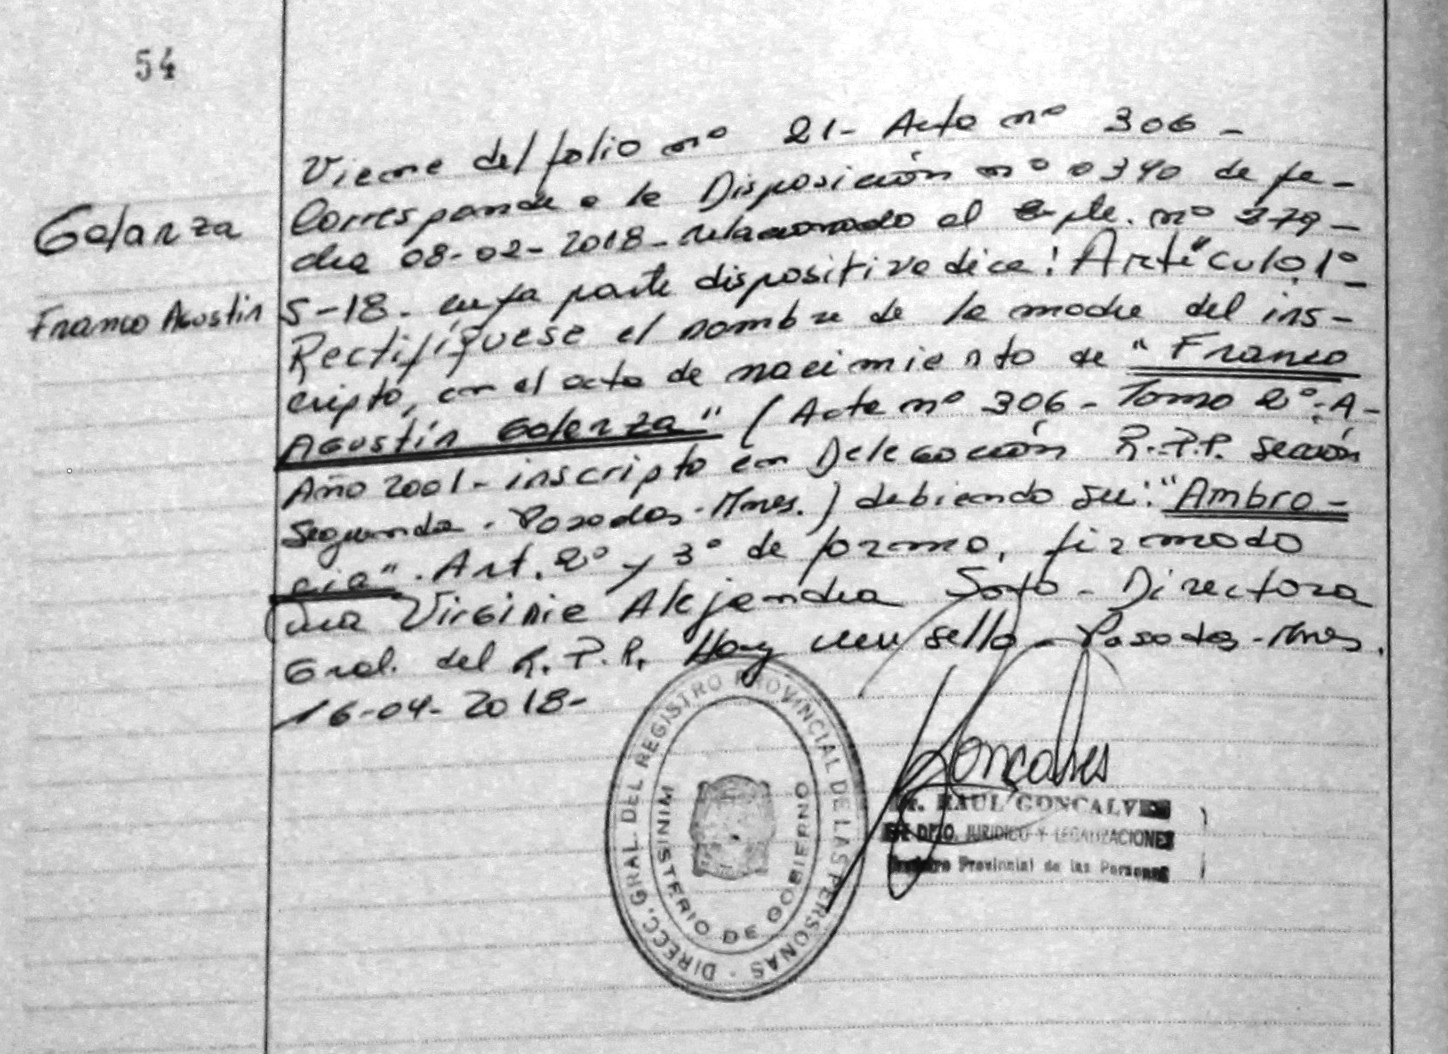 54
Galarza
Franco Agustín
Viene del folio nº 21- Acta nº 306 -
Corresponde a la Disposición nº 0340 de fe-
cha 08-02-2018- relacionado al Expte. nº 279-
5-18. cuya parte dispositiva dice: Artículo 1º
Rectifíquese el nombre de la madre del ins-
cripto, en el acta de nacimiento de "Franco
Agustín Galarza" (Acta nº 306 - Tomo 2º-A-
Año 2001- inscripto en Delegación R.P.P. Sección
Segunda - Posadas-Mnes.) debiendo ser: "Ambro-
cia". Art. 2º y 3º de forma, firmado
Dra Virginia Alejandra Soto - Directora
Gral. del R.P.P. Hay un sello - Posadas-Mnes.
16-04-2018-
DIRECC. GRAL. DEL REGISTRO PROVINCIAL DE LAS PERSONAS -
MINISTERIO DE GOBIERNO
Goncalves
RAUL GONCALVES
DPTO. JURIDICO Y LEGALIZACIONES
Registro Provincial de las Personas